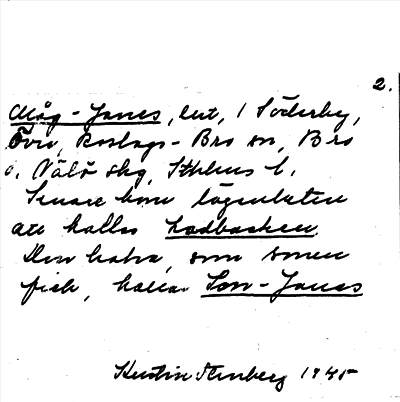 2.
Måg-Janes, lut, i Söderby,
Övre, Roslags-Bro sn, Bro
o. Vätö skg, Sthlms l.
Senare kom lägenheten
att kallas Ladbacken.
Den halva, som sonen
fick, kallas Son-Janes
Kerstin Stenberg 1945